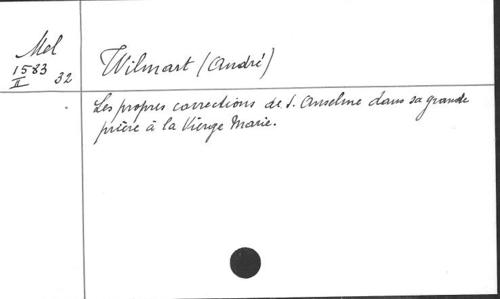 Mel
1583
II
32
Wilmart (André)
Les propres corrections de S. Anselme dans sa grande
prière à la Vierge Marie.